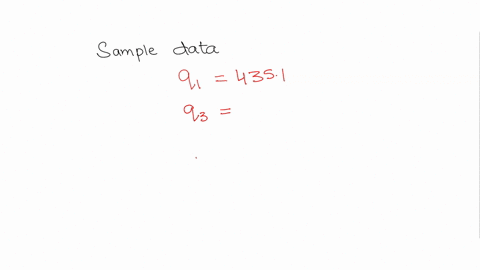 Sample data
q₁ = 435.1
q₃ =